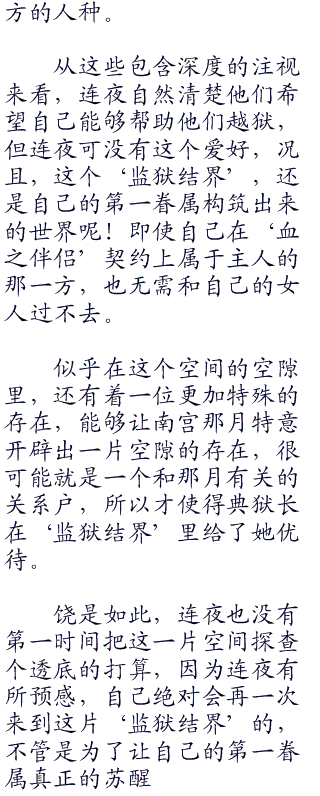 方的人种。
从这些包含深度的注视
来看，连夜自然清楚他们希
望自己能够帮助他们越狱，
但连夜可没有这个爱好，况
且，这个‘监狱结界’，还
是自己的第一眷属构筑出来
的世界呢！即使自己在‘血
之伴侣’契约上属于主人的
那一方，也无需和自己的女
人过不去。
似乎在这个空间的空隙
里，还有着一位更加特殊的
存在，能够让南宫那月特意
开辟出一片空隙的存在，很
可能就是一个和那月有关的
关系户，所以才使得典狱长
在‘监狱结界’里给了她优
待。
饶是如此，连夜也没有
第一时间把这一片空间探查
个透底的打算，因为连夜有
所预感，自己绝对会再一次
来到这片‘监狱结界’的，
不管是为了让自己的第一眷
属真正的苏醒